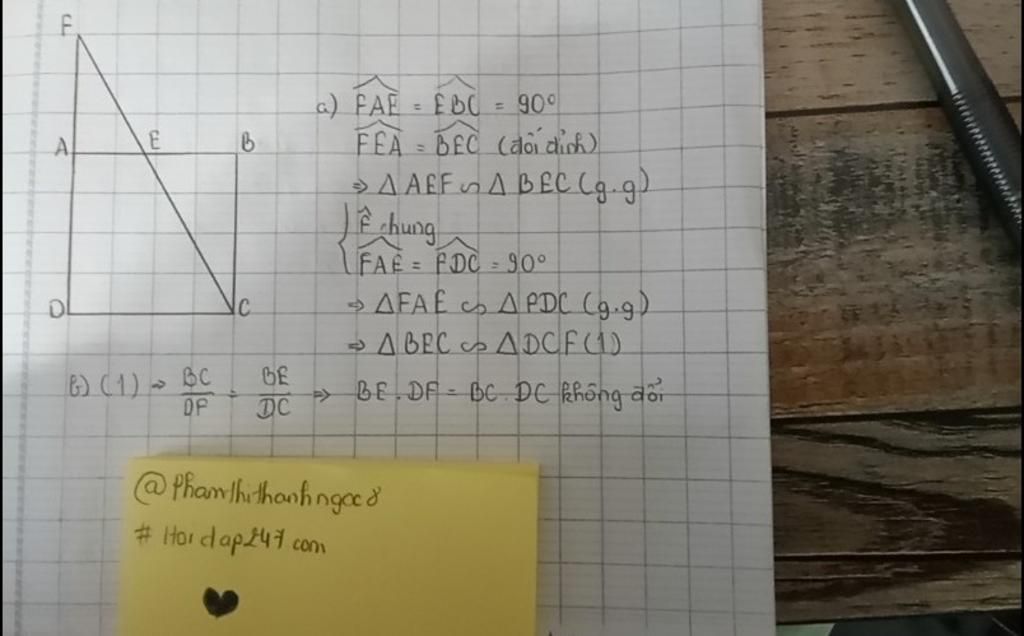 F
A E B
D C
a) FAE = EBC = 90°
FEA = BEC (đối đỉnh)
⇒ △AEF ∽ △BEC (g.g)
Ê chung
FAE = FDC = 90°
⇒ △FAE ∽ △FDC (g.g)
⇒ △BEC ∽ △DCF (1)
b) (1) ⇒ BC/DF = BE/DC ⇒ BE.DF = BC.DC không đổi
@Phamthithanhngoc8
# Hoidap247.com